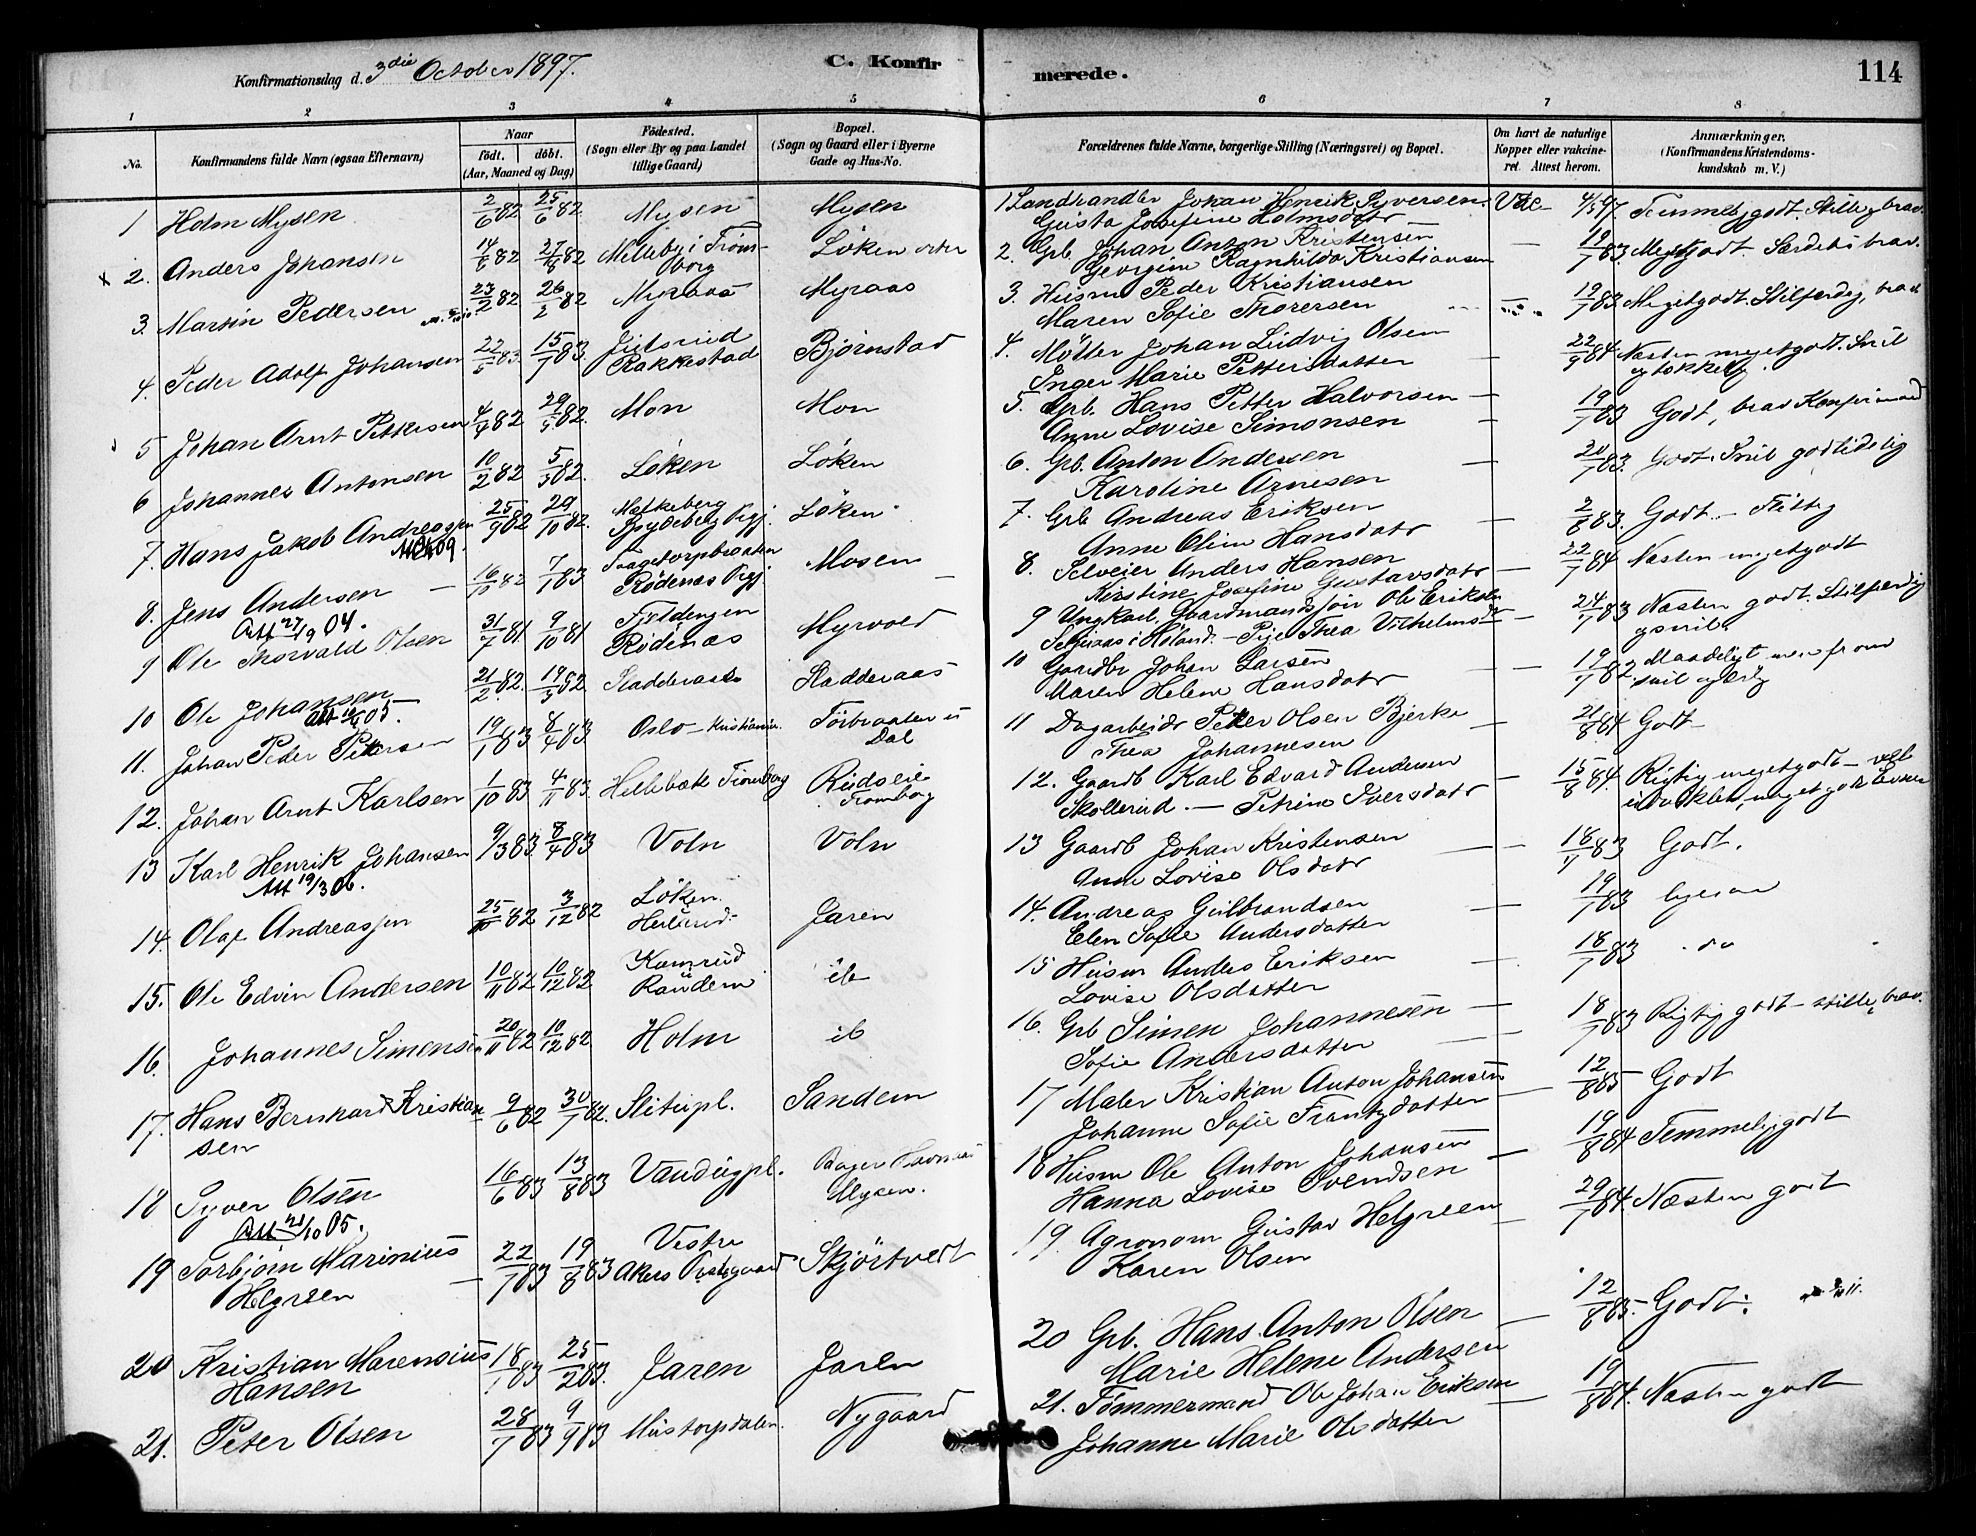 Konfirmationsdag d. 3die October 1897.
C. Konfirmerede.
114
1 2 3 4 5 6 7 8
No.
Konfirmandens fulde Navn (ogsaa Efternavn)
Naar
födt. döbt.
(Aar, Maaned og Dag)
Födested.
(Sogn eller By og paa Landet
tillige Gaard)
Bopæl.
(Sogn og Gaard eller i Byerne
Gade og Hus-No.
Forældrenes fulde Navne, borgerlige Stilling (Næringsvei) og Bopæl.
Om havt de naturlige
Kopper eller vakcine-
ret. Attest herom.
Anmærkninger.
(Konfirmandens Kristendoms-
kundskab m. V.)
1 Holm Mysen 2/6 82 25/6 82 Mysen Mysen
1 Landhandler Johan Henrik Syversen
Gusta Josefine Holmsdatr
Vac 4/5 97 Temmeligodt. Stille, brav
2. Anders Johansen 14/6 82 27/8 82 Melleby i Trøm-
borg
Løken
2. Grb. Johan Anton Kristensen
Georgine Ragnhilda Kristiansen
19/7 83 Megetgodt. Særdeles brav.
3. Martin Pedersen 23/2 82 26/2 82 Myraas Myraas
3. Husm Peder Kristiansen
Maren Sofie Thoresen
19/7 83 Megetgodt. Stilfærdig, brav
4. Peder Adolf Johansen 22/5 83 15/7 83
Rakkestad
Bjørnstad
4. Møller Johan Ludvig Olsen
Inger Marie Pettersdatter
22/9 84 Næsten megetgodt. Snil
5 Johan Arnt Pettersen 4/4 82 29/5 82 Mon Mon
5. Grb. Hans Petter Halvorsen
Anne Lovise Simonsen
19/7 83 Godt, brav Konfirmand
6 Johannes Antonsen 10/2 82 5/3 82 Løken Løken
6. Grb. Anton Andersen
Karoline Arnesen
20/7 83 Godt. Snil godlidelig
7. Hans Jakob Andreassen 25/9 82 29/10 82
Spydeberg Prgj.
Løken
7. Grb Andreas Eriksen
Anne Oline Hansdatr
2/8 83. Godt – Flittig
8. Jens Andersen 16/10 82 7/1 83
Rødenæs Prgj
Mosen
Att 27/9 04.
8. Selveier Anders Hansen
Kirstine Josefine Gustavsdatr
22/7 84 Næsten megetgodt
9 Ole Thorvald Olsen 31/7 81 9/10 81
Rødenæs
Myrvold
9 Ungkarl, Ole Eriksen
– Pige Thea Vilhelmsd
24/7 83 Næsten godt. Stilfærdig
og snil.
10 Ole Johansen 21/2 82. 19/5 82. Sladderaas Sladderaas
10 Gaardbr Johan Larsen
Maren Helene Hansdatr
19/7 82. Maadeligt men from
snil og ærlig
11. Johan Peder Petersen 19/1 83 8/4 83 Oslo – Kristiania.
Dal
11 Dagarbeidr Peter Olsen Bjerke
Thea Johannesen
21/8 84 Godt
12. Johan Arnt Karlsen 1/10 83 4/11 83. Hellebæk Trømborg Rudseie
Trømborg
12. Gaardb Karl Edvard Andersen
Skollerud. – Petrine Iversdatr
15/8 84. Rigtig megetgodt – vel
udviklet, meget gode Evner
13 Karl Henrik Johansen 9/3 83 8/4 83 Voln Voln
Att 19/3 06.
13 Gaardb Johan Kristensen
Anne Lovise Olsdatr
18/7 83 Godt.
14. Olaf Andreassen 25/10 82 3/12 82 Løken. Jaren
14. Andreas Gulbrandsen
Elen Sofie Andersdatter
19/7 83 ligesaa
15. Ole Edvin Andersen 10/11 82 10/12 82 Kamrud ib
15 Husm Anders Eriksen
Lovise Olsdatter
18/7 83 do
16. Johannes Simensen 20/11 82 10/12 82 Holm ib
16. Grb Simen Johannesen
Sofie Andersdatter
18/7 83 Rigtig godt – stille, brav.
17. Hans Bernhard Kristian
sen
9/6 82 30/7 82. Slitupl. Sandem
17 Maler Kristian Anton Johansen
Johanne Sofie Frantzdatter
12/8 85 Godt
18 Syver Olsen 16/6 83 13/8 83 Vandugpl.
Mysen.
Att 21/10 05.
18 Husm Ole Anton Johansen
Hanna Lovise Svendsen
19/8 84 Temmeligodt
19 Torbjørn Marinius
Helgesen
22/7 83 19/8 83 Vestre
Akers Prestegaard
Skjørtvedt
19. Agronom Gustav Helgesen
Karen Olsen
29/7 84. Næsten godt
20 Kristian Marensius
Hansen
18/1 83 25/2 83. Jaren Jaren
20 Grb. Hans Anton Olsen
Marie Helene Andersen
12/8 85. Godt.
21. Peter Olsen 28/7 83 9/9 83 Mustorpdalen. Nygaard
21. Tømmermand Ole Johan Eriksen
Johanne Marie Olsdatter
19/8 84. Næsten godt